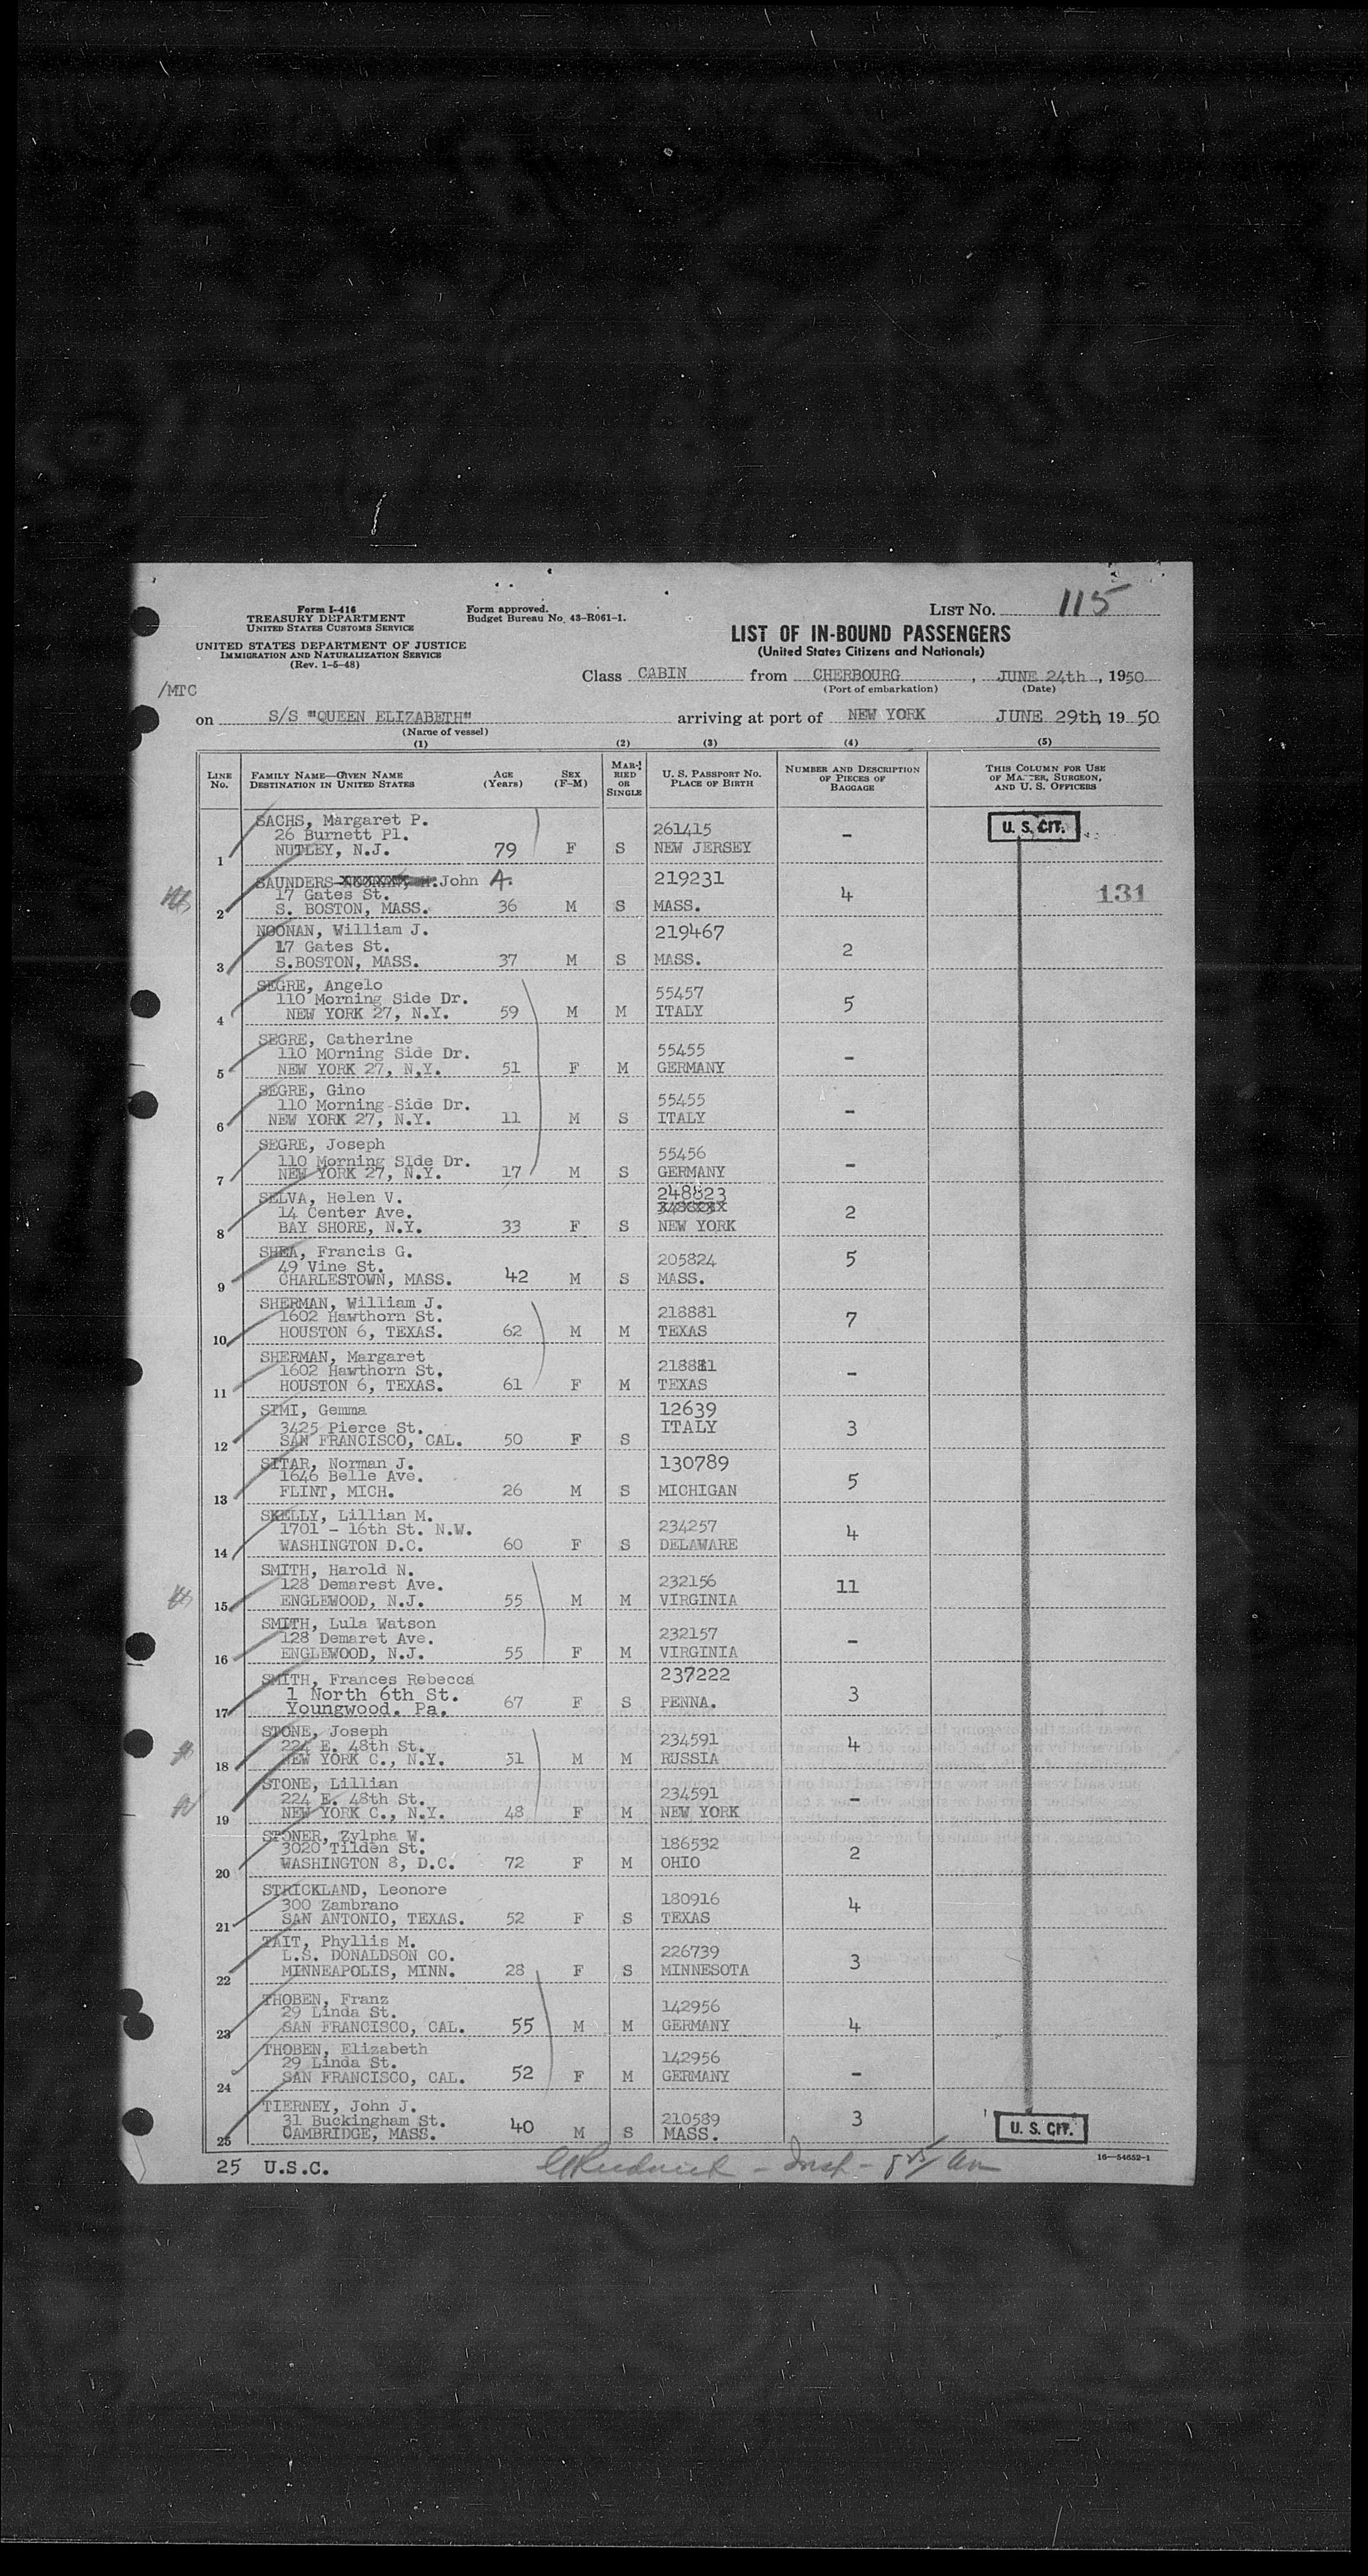 Form I-416
TREASURY DEPARTMENT
UNITED STATES CUSTOMS SERVICE
UNITED STATES DEPARTMENT OF JUSTICE
IMMIGRATION AND NATURALIZATION SERVICE
(Rev. 1-5-48)
Form approved.
Budget Bureau No. 43-R061-1.
LIST No. 115
LIST OF IN-BOUND PASSENGERS
(United States Citizens and Nationals)
Class CABIN from CHERBOURG, JUNE 24th, 1950
(Port of embarkation) (Date)
/MTC
on S/S "QUEEN ELIZABETH" arriving at port of NEW YORK JUNE 29th 19 50
(Name of vessel)
(1) (2) (3) (4) (5)
LINE No. FAMILY NAME—GIVEN NAME DESTINATION IN UNITED STATES AGE (Years) SEX (F-M) MARRIED OR SINGLE U. S. PASSPORT No. PLACE OF BIRTH NUMBER AND DESCRIPTION OF PIECES OF BAGGAGE THIS COLUMN FOR USE OF MASTER, SURGEON, AND U. S. OFFICERS
SACHS, Margaret P.
26 Burnett Pl. 261415 - U. S. CIT.
1 NUTLEY, N.J. 79 F S NEW JERSEY
SAUNDERS John A. 219231
17 Gates St. 4 131
2 S. BOSTON, MASS. 36 M S MASS.
NOONAN, William J. 219467
17 Gates St. 2
3 S.BOSTON, MASS. 37 M S MASS.
SEGRE, Angelo
110 Morning Side Dr. 55457 5
4 NEW YORK 27, N.Y. 59 M M ITALY
SEGRE, Catherine
110 MOrning Side Dr. 55455 -
5 NEW YORK 27, N.Y. 51 F M GERMANY
SEGRE, Gino
110 Morning Side Dr. 55455 -
6 NEW YORK 27, N.Y. 11 M S ITALY
SEGRE, Joseph
110 Morning SIde Dr. 55456 -
7 NEW YORK 27, N.Y. 17 M S GERMANY
SELVA, Helen V. 248823
14 Center Ave. 2
8 BAY SHORE, N.Y. 33 F S NEW YORK
SHEA, Francis G.
49 Vine St. 205824 5
9 CHARLESTOWN, MASS. 42 M S MASS.
SHERMAN, William J.
1602 Hawthorn St. 218881 7
10 HOUSTON 6, TEXAS. 62 M M TEXAS
SHERMAN, Margaret
1602 Hawthorn St. 218881 -
11 HOUSTON 6, TEXAS. 61 F M TEXAS
SIMI, Gemma 12639
3425 Pierce St. ITALY 3
12 SAN FRANCISCO, CAL. 50 F S
SITAR, Norman J. 130789
1646 Belle Ave. 5
13 FLINT, MICH. 26 M S MICHIGAN
SKELLY, Lillian M.
1701 - 16th St. N.W. 234257 4
14 WASHINGTON D.C. 60 F S DELAWARE
SMITH, Harold N.
128 Demarest Ave. 232156 11
15 ENGLEWOOD, N.J. 55 M M VIRGINIA
SMITH, Lula Watson
128 Demaret Ave. 232157 -
16 ENGLEWOOD, N.J. 55 F M VIRGINIA
SMITH, Frances Rebecca 237222
1 North 6th St. 3
17 Youngwood. Pa. 67 F S PENNA.
STONE, Joseph
224 E. 48th St. 234591 4
18 NEW YORK C., N.Y. 51 M M RUSSIA
STONE, Lillian
224 E. 48th St. 234591 -
19 NEW YORK C., N.Y. 48 F M NEW YORK
STONER, Zylpha W.
3020 Tilden St. 186532 2
20 WASHINGTON 8, D.C. 72 F M OHIO
STRICKLAND, Leonore
300 Zambrano 180916 4
21 SAN ANTONIO, TEXAS. 52 F S TEXAS
TAIT, Phyllis M.
L.S. DONALDSON CO. 226739 3
22 MINNEAPOLIS, MINN. 28 F S MINNESOTA
THOBEN, Franz
29 Linda St. 142956
23 SAN FRANCISCO, CAL. 55 M M GERMANY 4
THOBEN, Elizabeth
29 Linda St. 142956
24 SAN FRANCISCO, CAL. 52 F M GERMANY -
TIERNEY, John J.
31 Buckingham St. 210589 3
25 CAMBRIDGE, MASS. 40 M S MASS. U. S. CIT.
25 U.S.C. 16—54652-1